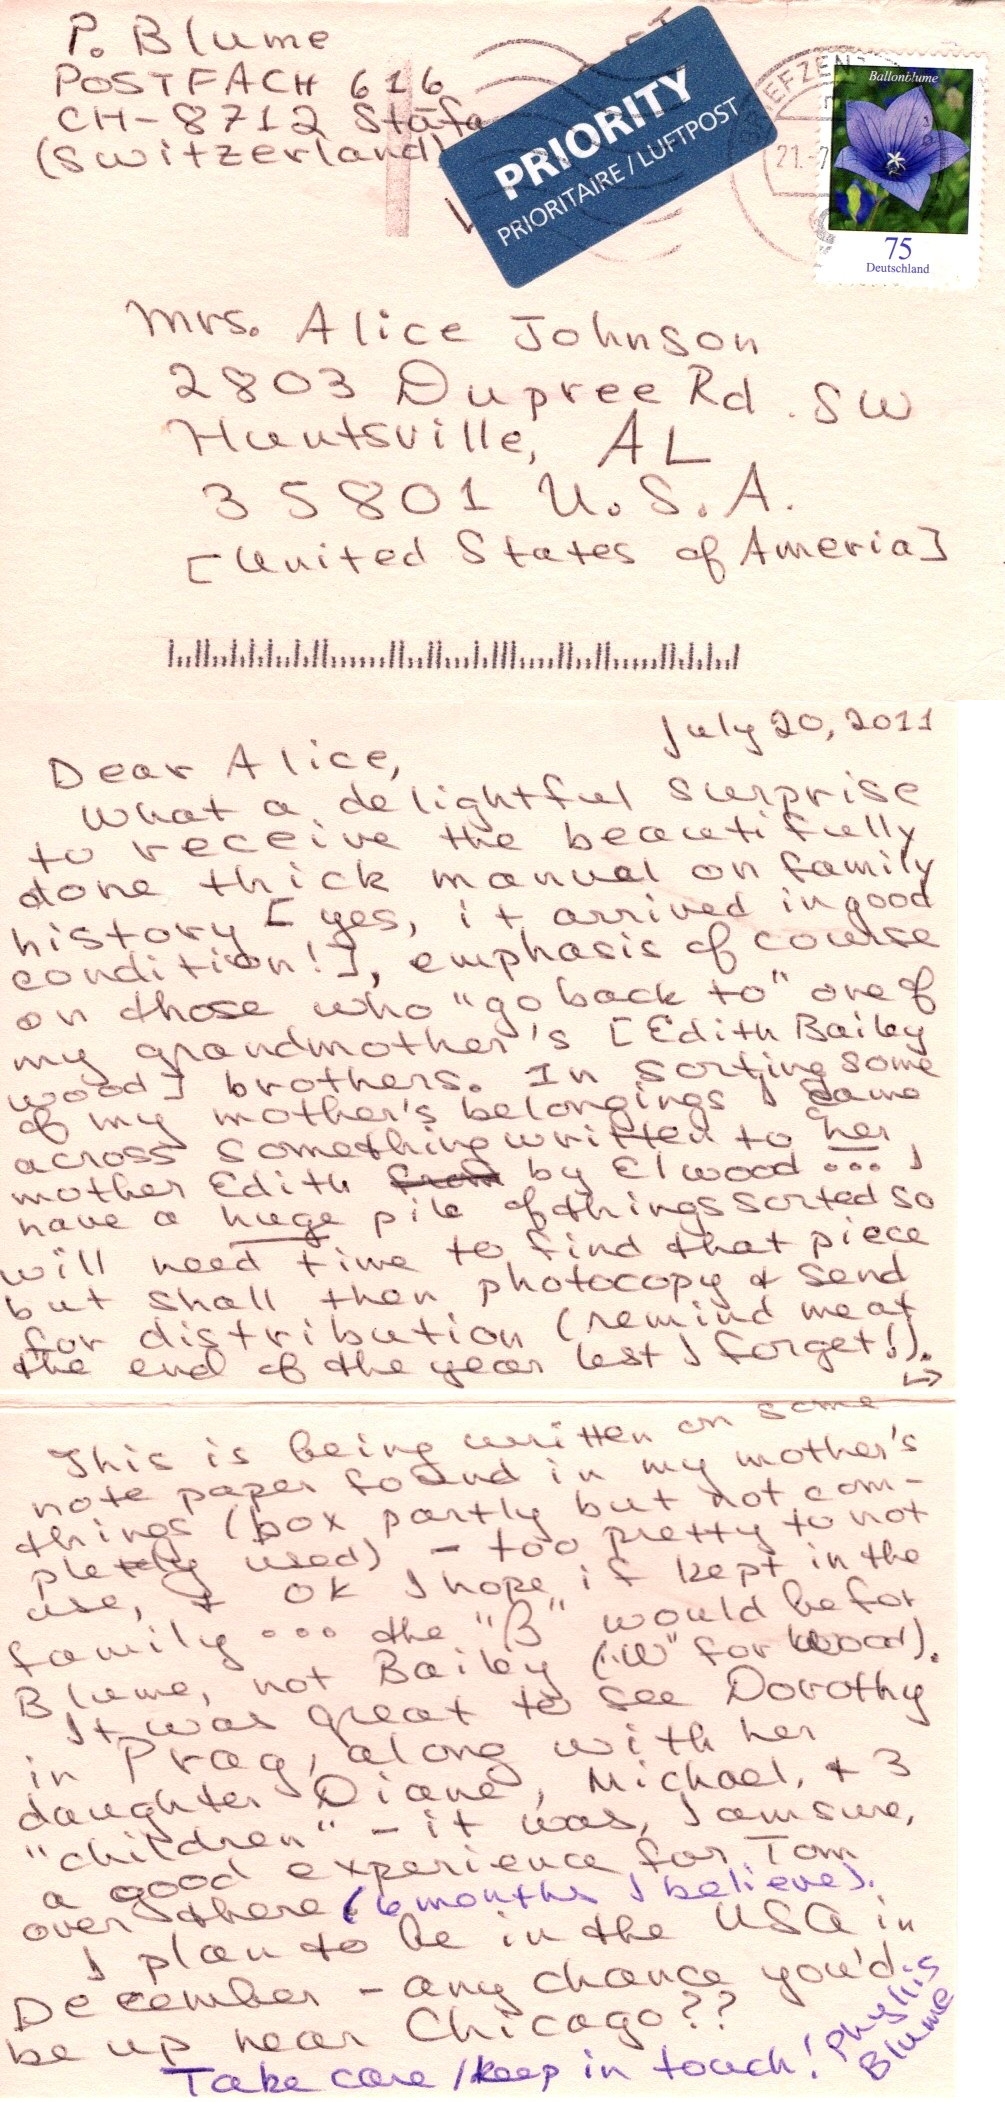 P. Blume
POSTFACH 616
CH-8712 Stäfa
(Switzerland)
PRIORITY
PRIORITAIRE / LUFTPOST
BRIEFZEN
21.-7
Ballonblume
75
Deutschland
Mrs. Alice Johnson
2803 Dupree Rd. SW
Huntsville, AL
35801 U.S.A.
[United States of Ameria]
July 20, 2011
Dear Alice,
What a delightful surprise
to receive the beautifully
done thick manual on family
history [yes, it arrived in good
condition!], emphasis of course
on those who "go back to" one of
my grandmother's [Edith Bailey
Wood] brothers. In sorting some
of my mother's belongings I came
across something written to her
mother Edith from by Elwood ... I
have a huge pile of things sorted so
will need time to find that piece
but shall then photocopy & send
for distribution (remind me at
the end of the year lest I forget!).
→
This is being written on some
note paper found in my mother's
things (box partly but not com-
pletely used) - too pretty to not
use, & OK I hope if kept in the
family ... the "B" would be for
Blume, not Bailey ("W" for Wood).
It was great to see Dorothy
in Prag, along with her
daughter Diane, Michael, & 3
"children" - it was, I am sure,
a good experience for Tom
over there (6 months I believe).
I plan to be in the USA in
December - any chance you'd
be up near Chicago??
Take care / keep in touch!
Phyllis
Blume